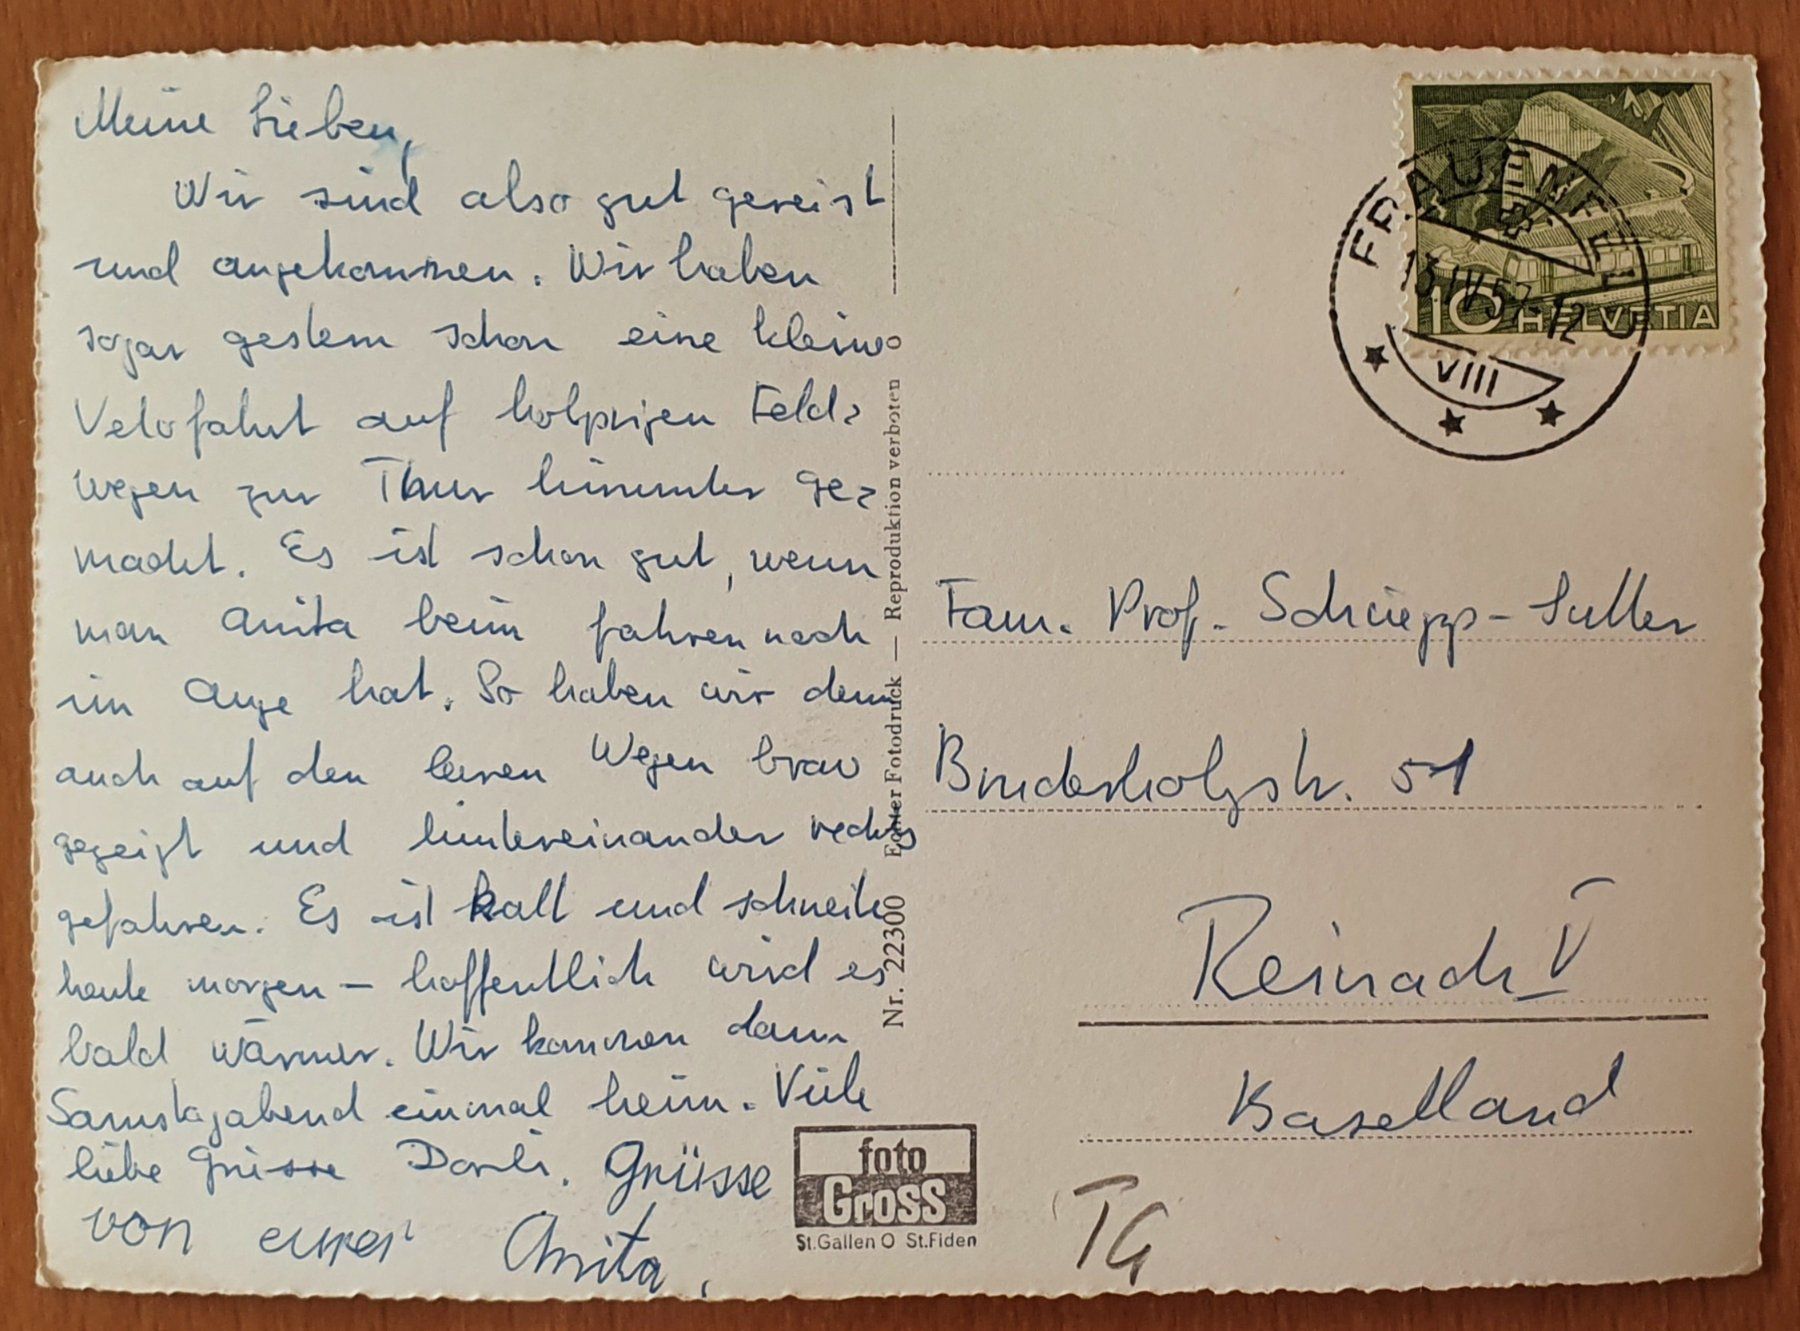 Meine Lieben,
Wir sind also gut gereist
und angekommen. Wir haben
sogar gestern schon eine kleine
Velofahrt auf holprigen Feld=
wegen zur Thur hinunter ge=
macht. Es ist schon gut, wenn
man Anita beim fahren noch
im Auge hat. So haben wir denn
auch auf den leeren Wegen brav
gezeigt und hintereinander rechts
gefahren. Es ist kalt und schneite
heute morgen – hoffentlich wird es
bald wärmer. Wir kommen dann
Samstagabend einmal heim. Viele
liebe Grüsse Dorli. Grüsse
von eurer Anita.
Nr. 22300 Echter Fotodruck — Reproduktion verboten
foto
Gross
St.Gallen O St.Fiden
10 HELVETIA
FRAUENFELD
13.IV.57-12
VIII
Fam. Prof. Schüepp-Sutter
Bruderholzstr. 51
Reinach V
Baselland
TG